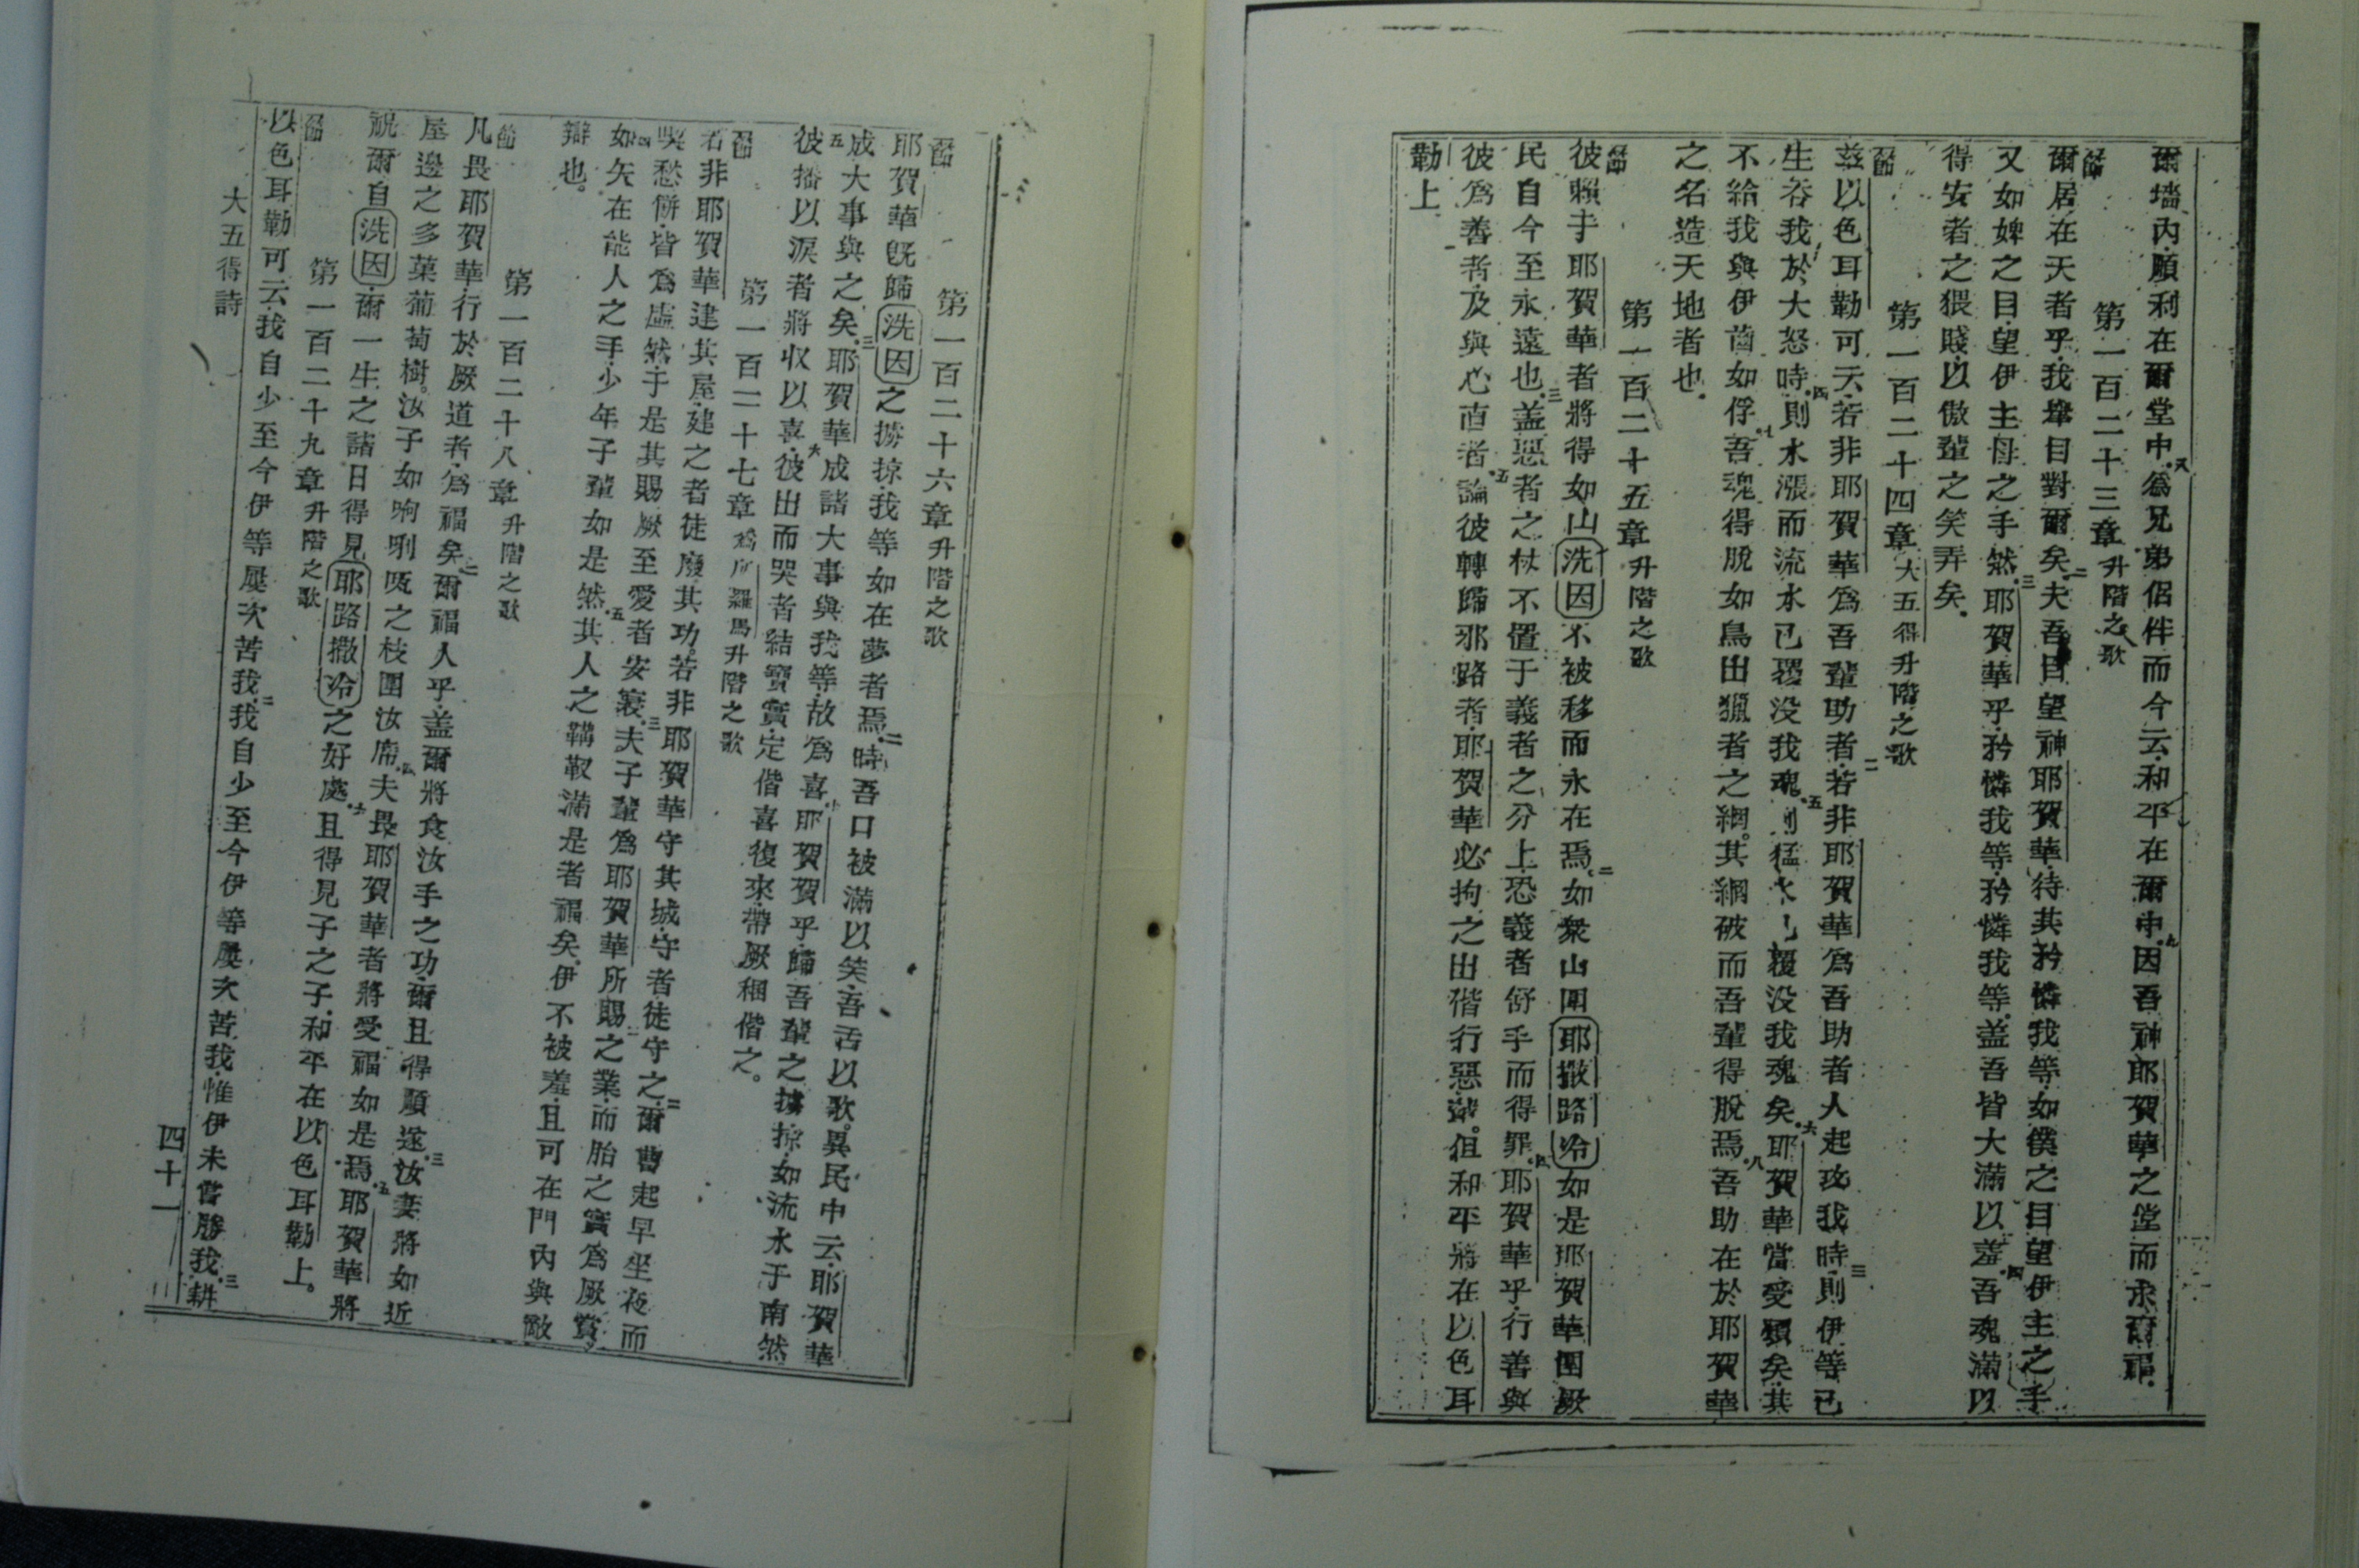 爾墻內順利在爾堂中八爲兄弟侶伴而今云和平在爾中九因吾神耶賀華之堂而求爾福
第一百二十三章升階之歌
節一爾居在天者乎我舉目對爾矣二夫吾目望神耶賀華待其矜憐我等如僕之目望伊主之手
又如婢之目望伊主母之手然三耶賀華乎矜憐我等矜憐我等盖吾皆大滿以羞四吾魂滿以
得安者之猥賤以傲輩之笑弄矣
第一百二十四章大五得升階之歌
節一茲以色耳勒可云若非耶賀華爲吾輩助者二若非耶賀華爲吾助者人起攻我時三則伊等已
生吞我於大怒時四則水漲而流水已覆没我魂五則猛水已覆没我魂矣六耶賀華當受頌矣其
不給我與伊齒如俘七吾魂得脫如鳥出獵者之網其網破而吾輩得脫焉八吾助在於耶賀華
之名造天地者也
第一百二十五章升階之歌
節一彼賴于耶賀華者將得如山洗因不被移而永在焉二如衆山圍耶撒路冷如是耶賀華圍厥
民自今至永遠也三盖惡者之杖不置于義者之分上恐義者舒手而得罪四耶賀華乎行善與
彼爲善者及與心直者五論彼轉歸邪路者耶賀華必拘之出偕行惡輩但和平將在以色耳
勒上
第一百二十六章升階之歌
節一耶賀華旣歸洗因之擄掠我等如在夢者焉二時吾口被滿以笑吾舌以歌異民中云耶賀華
成大事與之矣三耶賀華成諸大事與我等故爲喜四耶賀賀乎歸吾輩之擄掠如流水于南然
五彼播以淚者將収以喜六彼出而哭者結寶實定偕喜復來帶厥稇偕之
第一百二十七章爲所羅馬升階之歌
節一若非耶賀華建其屋建之者徒廢其功若非耶賀華守其城守者徒守之二爾曹起早坐夜而
喫愁餅皆爲虛然于是其賜厥至愛者安寢三夫子輩爲耶賀華所賜之業而胎之實爲厥賞
四如矢在能人之手少年子輩如是然五其人之韝靫滿是者福矣伊不被羞且可在門內與敵
辯也
第一百二十八章升階之歌
節一凡畏耶賀華行於厥道者爲福矣二爾福人乎盖爾將食汝手之功爾且得順遂三汝妻將如近
屋邊之多菓葡萄樹汝子如㖇唎㕭之枝圍汝席四夫畏耶賀華者將受福如是焉五耶賀華將
祝爾自洗因爾一生之諸日得見耶路撒冷之好處六且得見子之子和平在以色耳勒上
第一百二十九章升階之歌
節一以色耳勒可云我自少至今伊等屢次苦我二我自少至今伊等屢次苦我惟伊未嘗勝我三耕
大五得詩
四十一